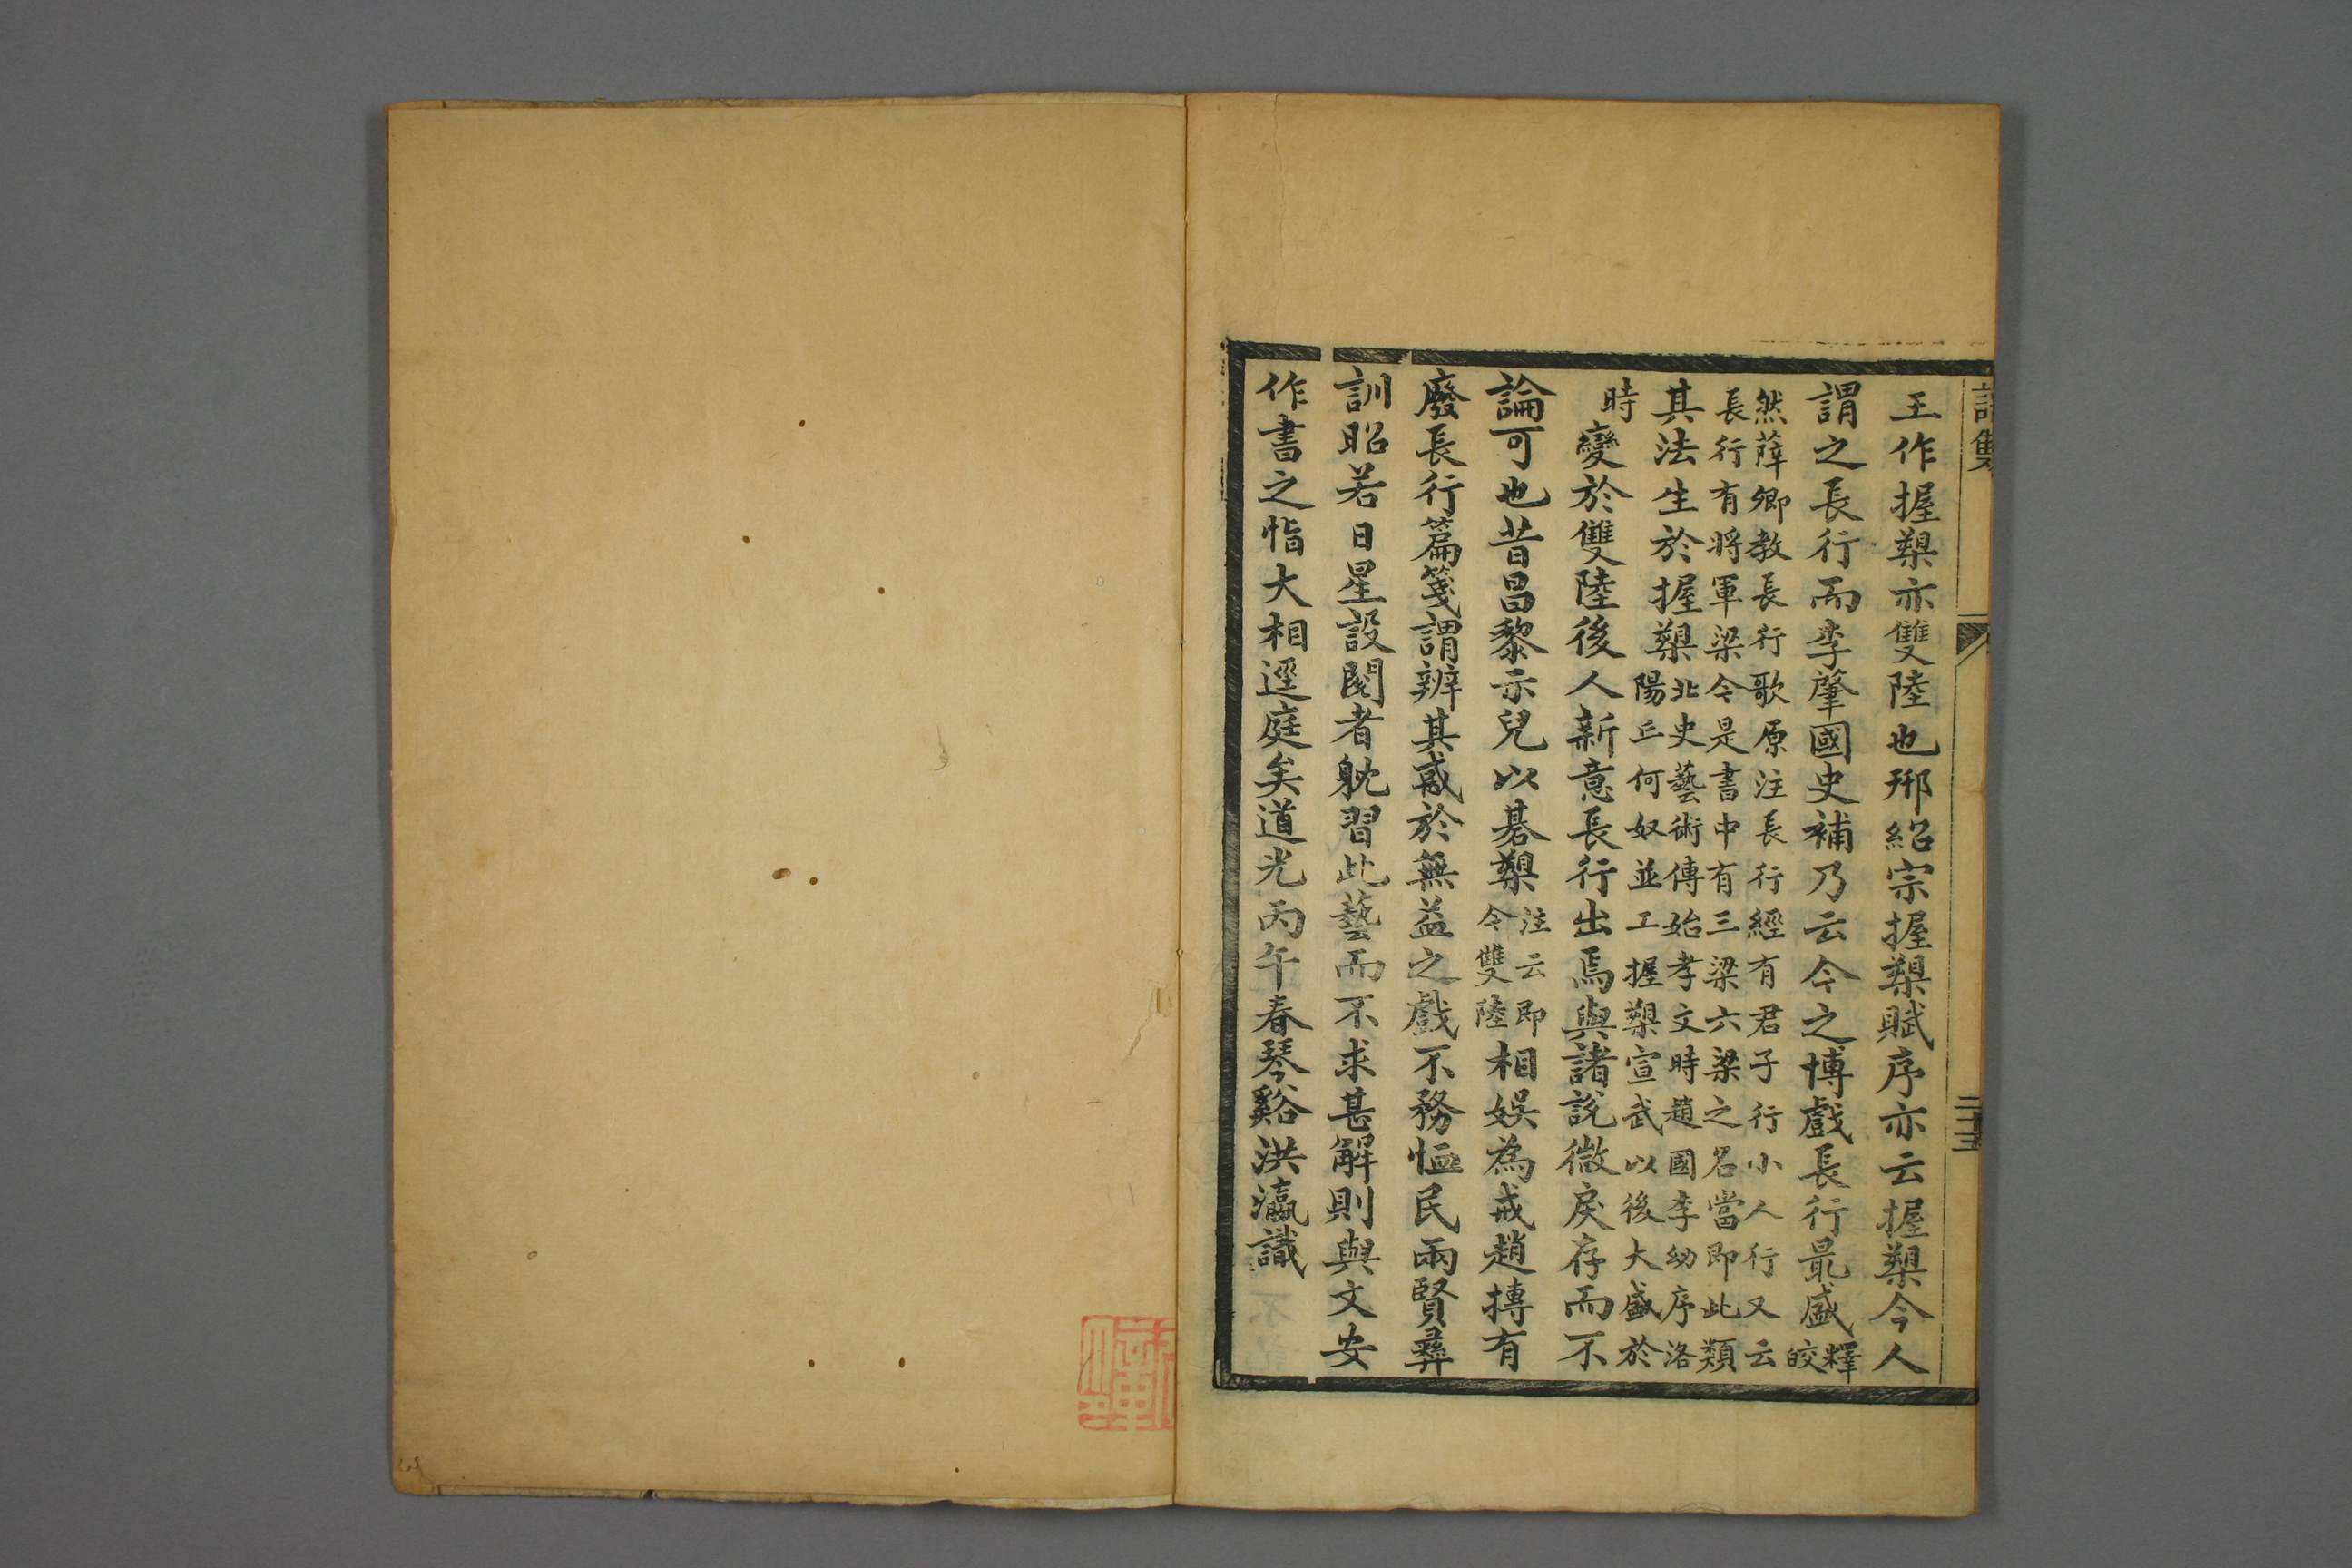 二十五
王作握槊亦雙陸也邢紹宗握槊賦序亦云握槊今人
謂之長行而李肇國史補乃云今之博戲長行最盛釋皎
然薛卿教長行歌原注長行經有君子行小人行又云
長行有將軍梁令是書中有三梁六梁之名當即此類
其法生於握槊北史藝術傳始孝文時趙國李幼序洛
陽丘何奴並工握槊宣武以後大盛於
時變於雙陸後人新意長行出焉與諸說微戾存而不
論可也昔昌黎示兒以棊槊注云即今雙陸相娛為戒趙摶有
廢長行篇箋謂辨其惑於無益之戲不務恤民兩賢彝
訓昭若日星設閱者躭習此藝而不求甚解則與文安
作書之恉大相逕庭矣道光丙午春琴谿洪瀛識